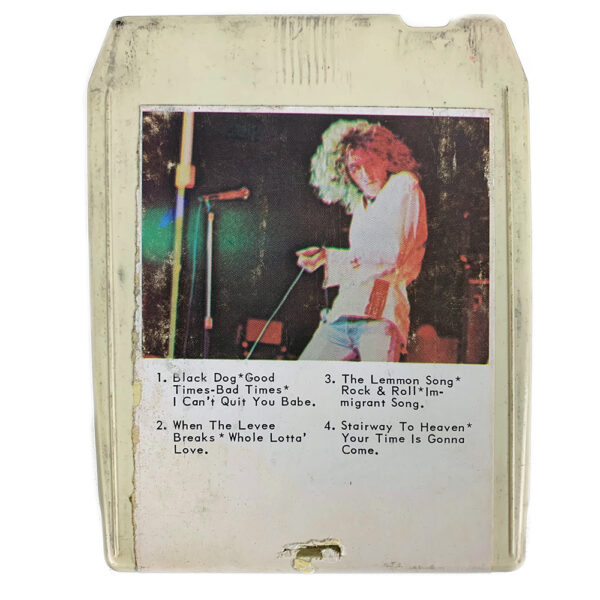 1. Black Dog*Good
Times-Bad Times*
I Can't Quit You Babe.
2. When The Levee
Breaks * Whole Lotta'
Love.
3. The Lemmon Song*
Rock & Roll*Im-
migrant Song.
4. Stairway To Heaven*
Your Time Is Gonna
Come.